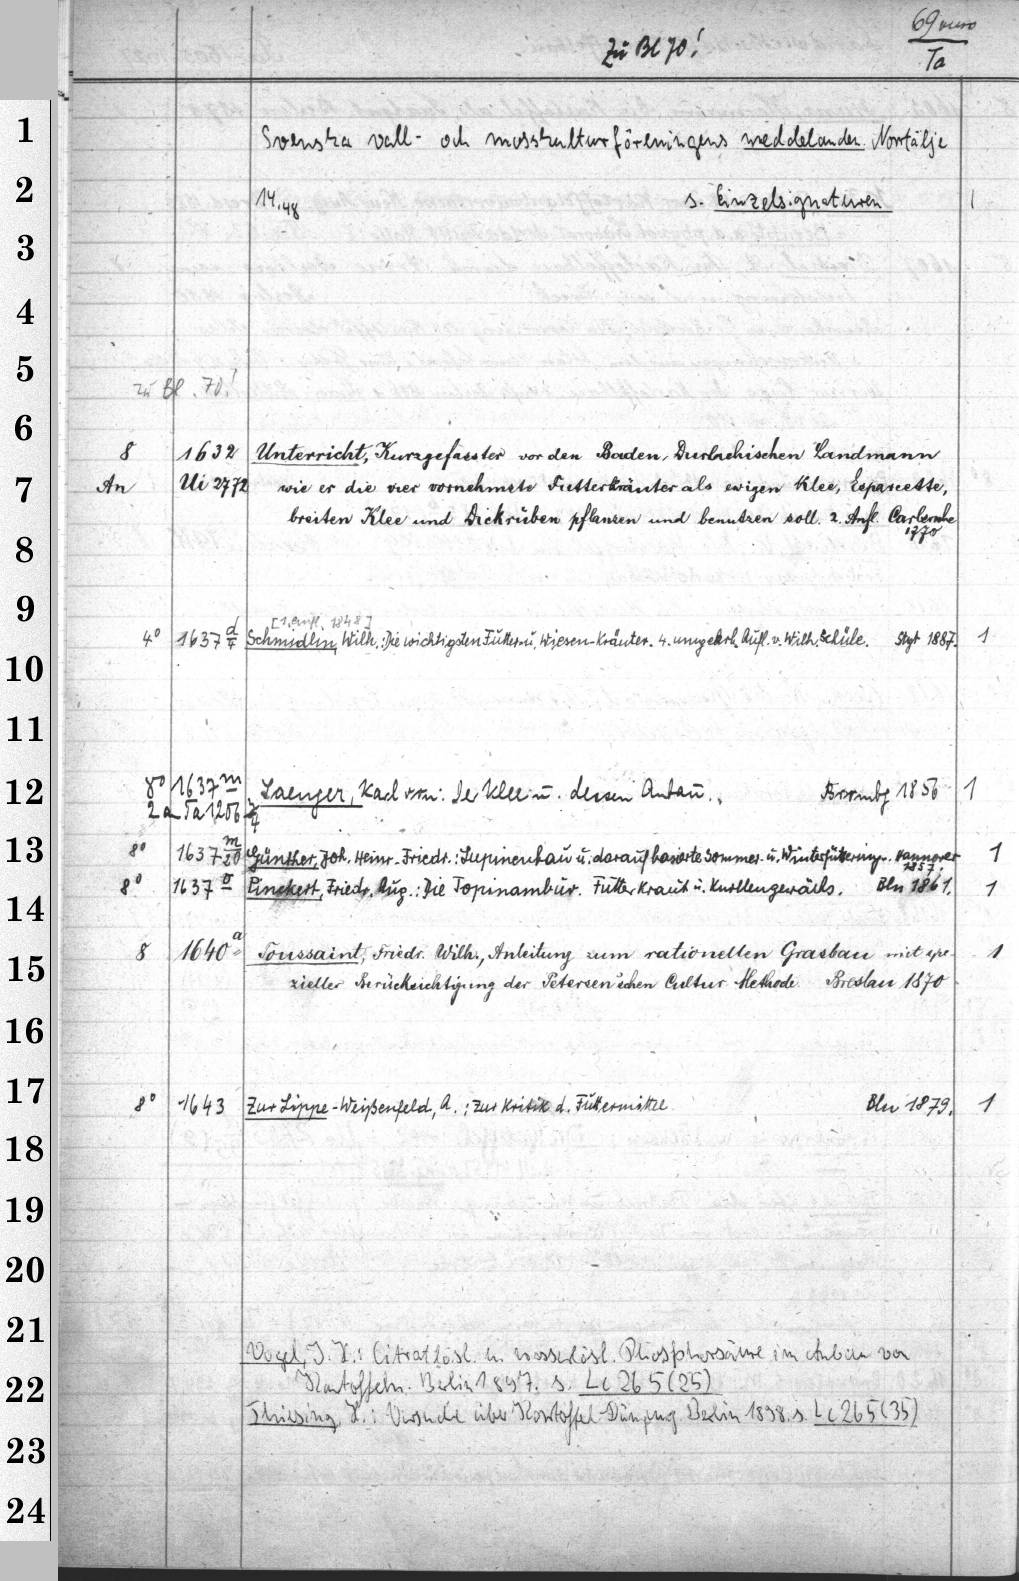 69 verso
Zu Bl 70!
Ta
1
Svenska vall- och mosskulturföreningens meddelanden. Norrtälje
2
14.48 s. Einzelsignaturen 1
3
4
5
zu Bl. 70!
6
8 1632 Unterricht, Kurzgefasster vor den Baden-Durlachischen Landmann
7
An Ui 2772 wie er die vier vornehmste Futterkräuter als ewigen Klee, Esparcette,
breiten Klee und Dickrüben pflanzen und benutzen soll. 2. Aufl. Carlsruhe
1770
8
9
[1. Aufl. 1848]
4° 1637 d/4 Schmidlin, Wilh.: Die wichtigsten Futter- u. Wiesen-Kräuter. 4. umgearb. Aufl. v. Wilh. Schüle. Stgt 1887. 1
10
11
12
8° 1637 m Laenger, Karl von: Der Klee u. dessen Anbau. Bromбg 1856 1
2 a Ta 1206
13
8° 1637 m/20 Günther, Joh. Heinr. Friedr.: Lupinenbau u. darauf basirte Sommer- u. Winterfütterung. Hannover 1
1857.
8° 1637 o Pinckert, Friedr. Aug.: Die Topinambur. Futterkraut u. Knollengewächs. Bln 1861. 1
14
8 1640 a Toussaint, Friedr. Wilh., Anleitung zum rationellen Grasbau mit spe- 1
15
zieller Berücksichtigung der Petersen'schen Cultur-Methode. Breslau 1870
16
17
8° 1643 Zur Lippe-Weißenfeld, A.: Zur Kritik d. Futtermittel Bln 1879. 1
18
19
20
21
Vogel, J. H.: Citratlösl. u. wasserlösl. Phosphorsäure im Anbau von
22
Kartoffeln. Berlin 1897. s. Lc 265 (25)
Thiesing, H.: Versuche über Kartoffel-Düngung Berlin 1898. s. Lc 265 (35)
23
24